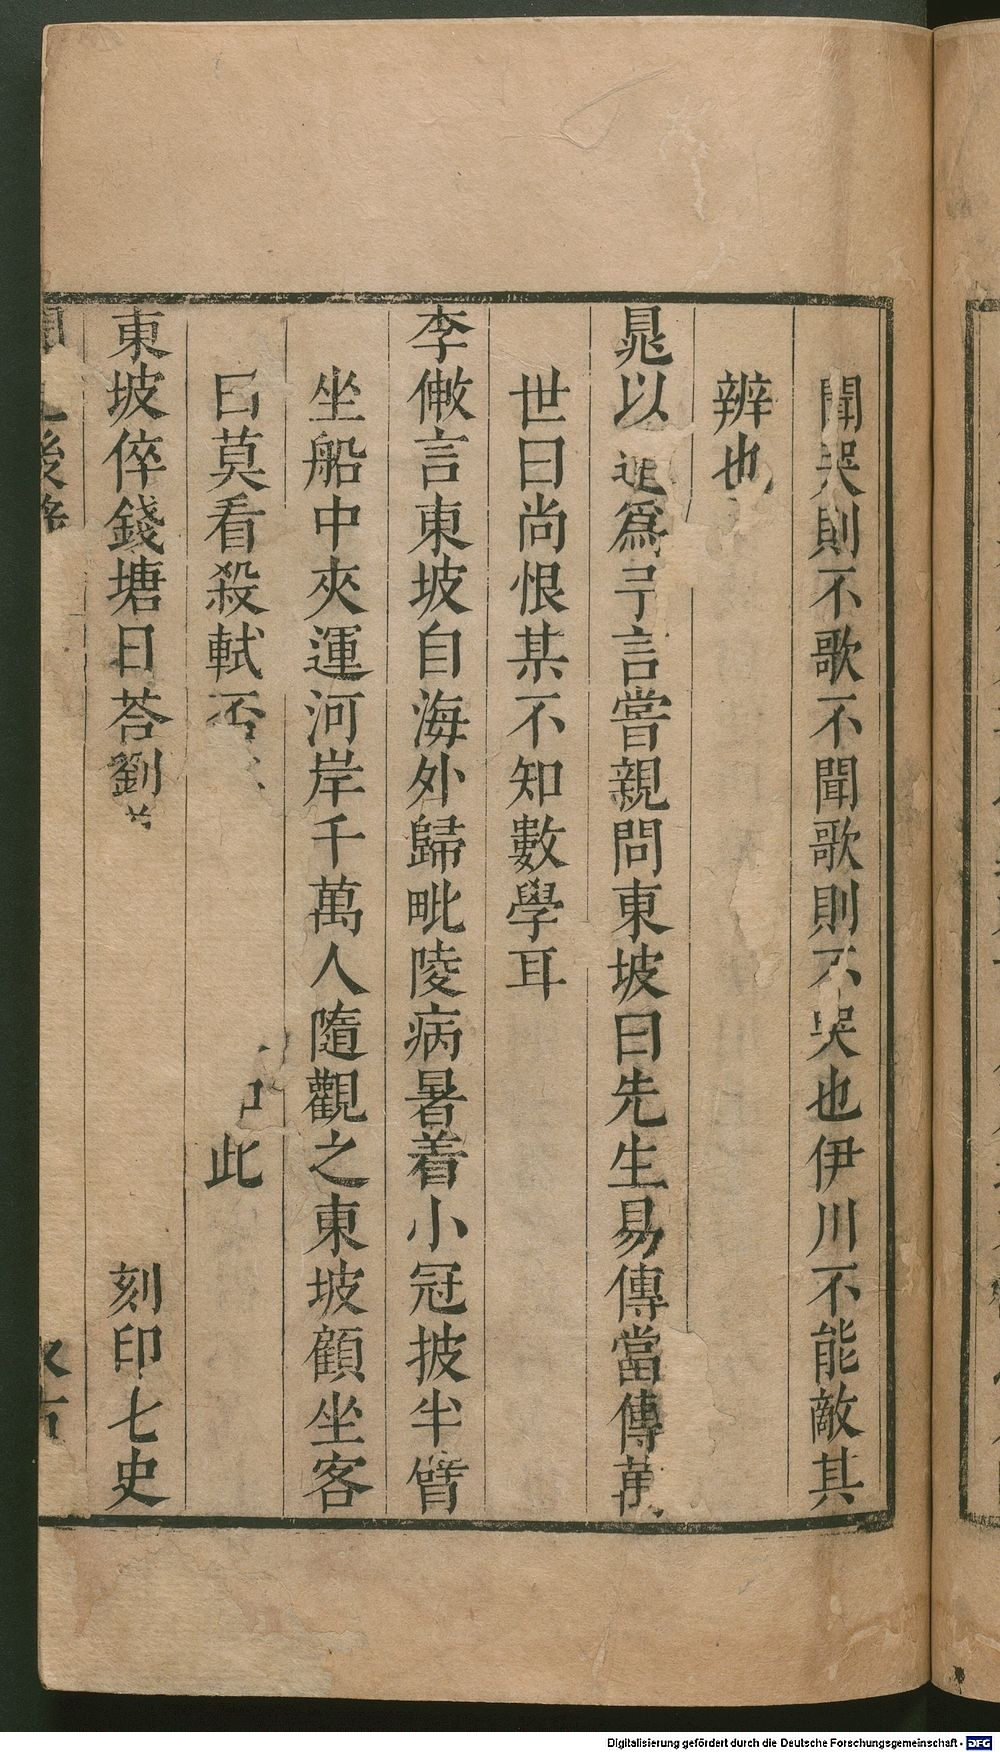 聞哭則不歌不聞歌則不哭也伊川不能敵其
辨也
晁以爲予言嘗親問東坡曰先生易傳當傳萬
世曰尚恨某不知數學耳
李方叔言東坡自海外歸毗陵病暑着小冠披半臂
坐船中夾運河岸千萬人隨觀之東坡顧坐客
曰莫看殺軾否 此
東坡倅錢塘日荅劉 刻印七史
後
Digitalisierung gefördert durch die Deutsche Forschungsgemeinschaft - DFG